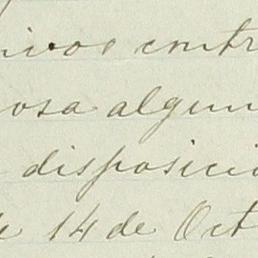 ivos contr
osa algun
disposici
14 de Oct